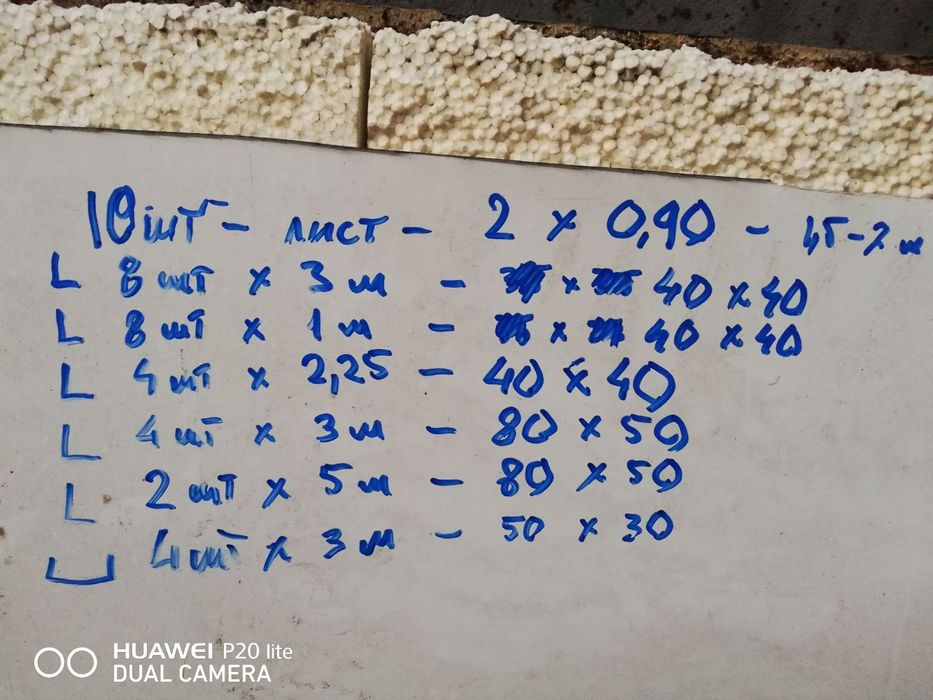 10 шт - лист - 2 x 0,90 - 4т-2 м
L 8 шт x 3 м - x 40 x 40
L 8 шт x 1 м - x 40 x 40
L 4 шт x 2,25 - 40 x 40
L 4 шт x 3 м - 80 x 50
L 2 шт x 5 м - 80 x 50
4 шт x 3 м - 50 x 30
HUAWEI P20 lite
DUAL CAMERA